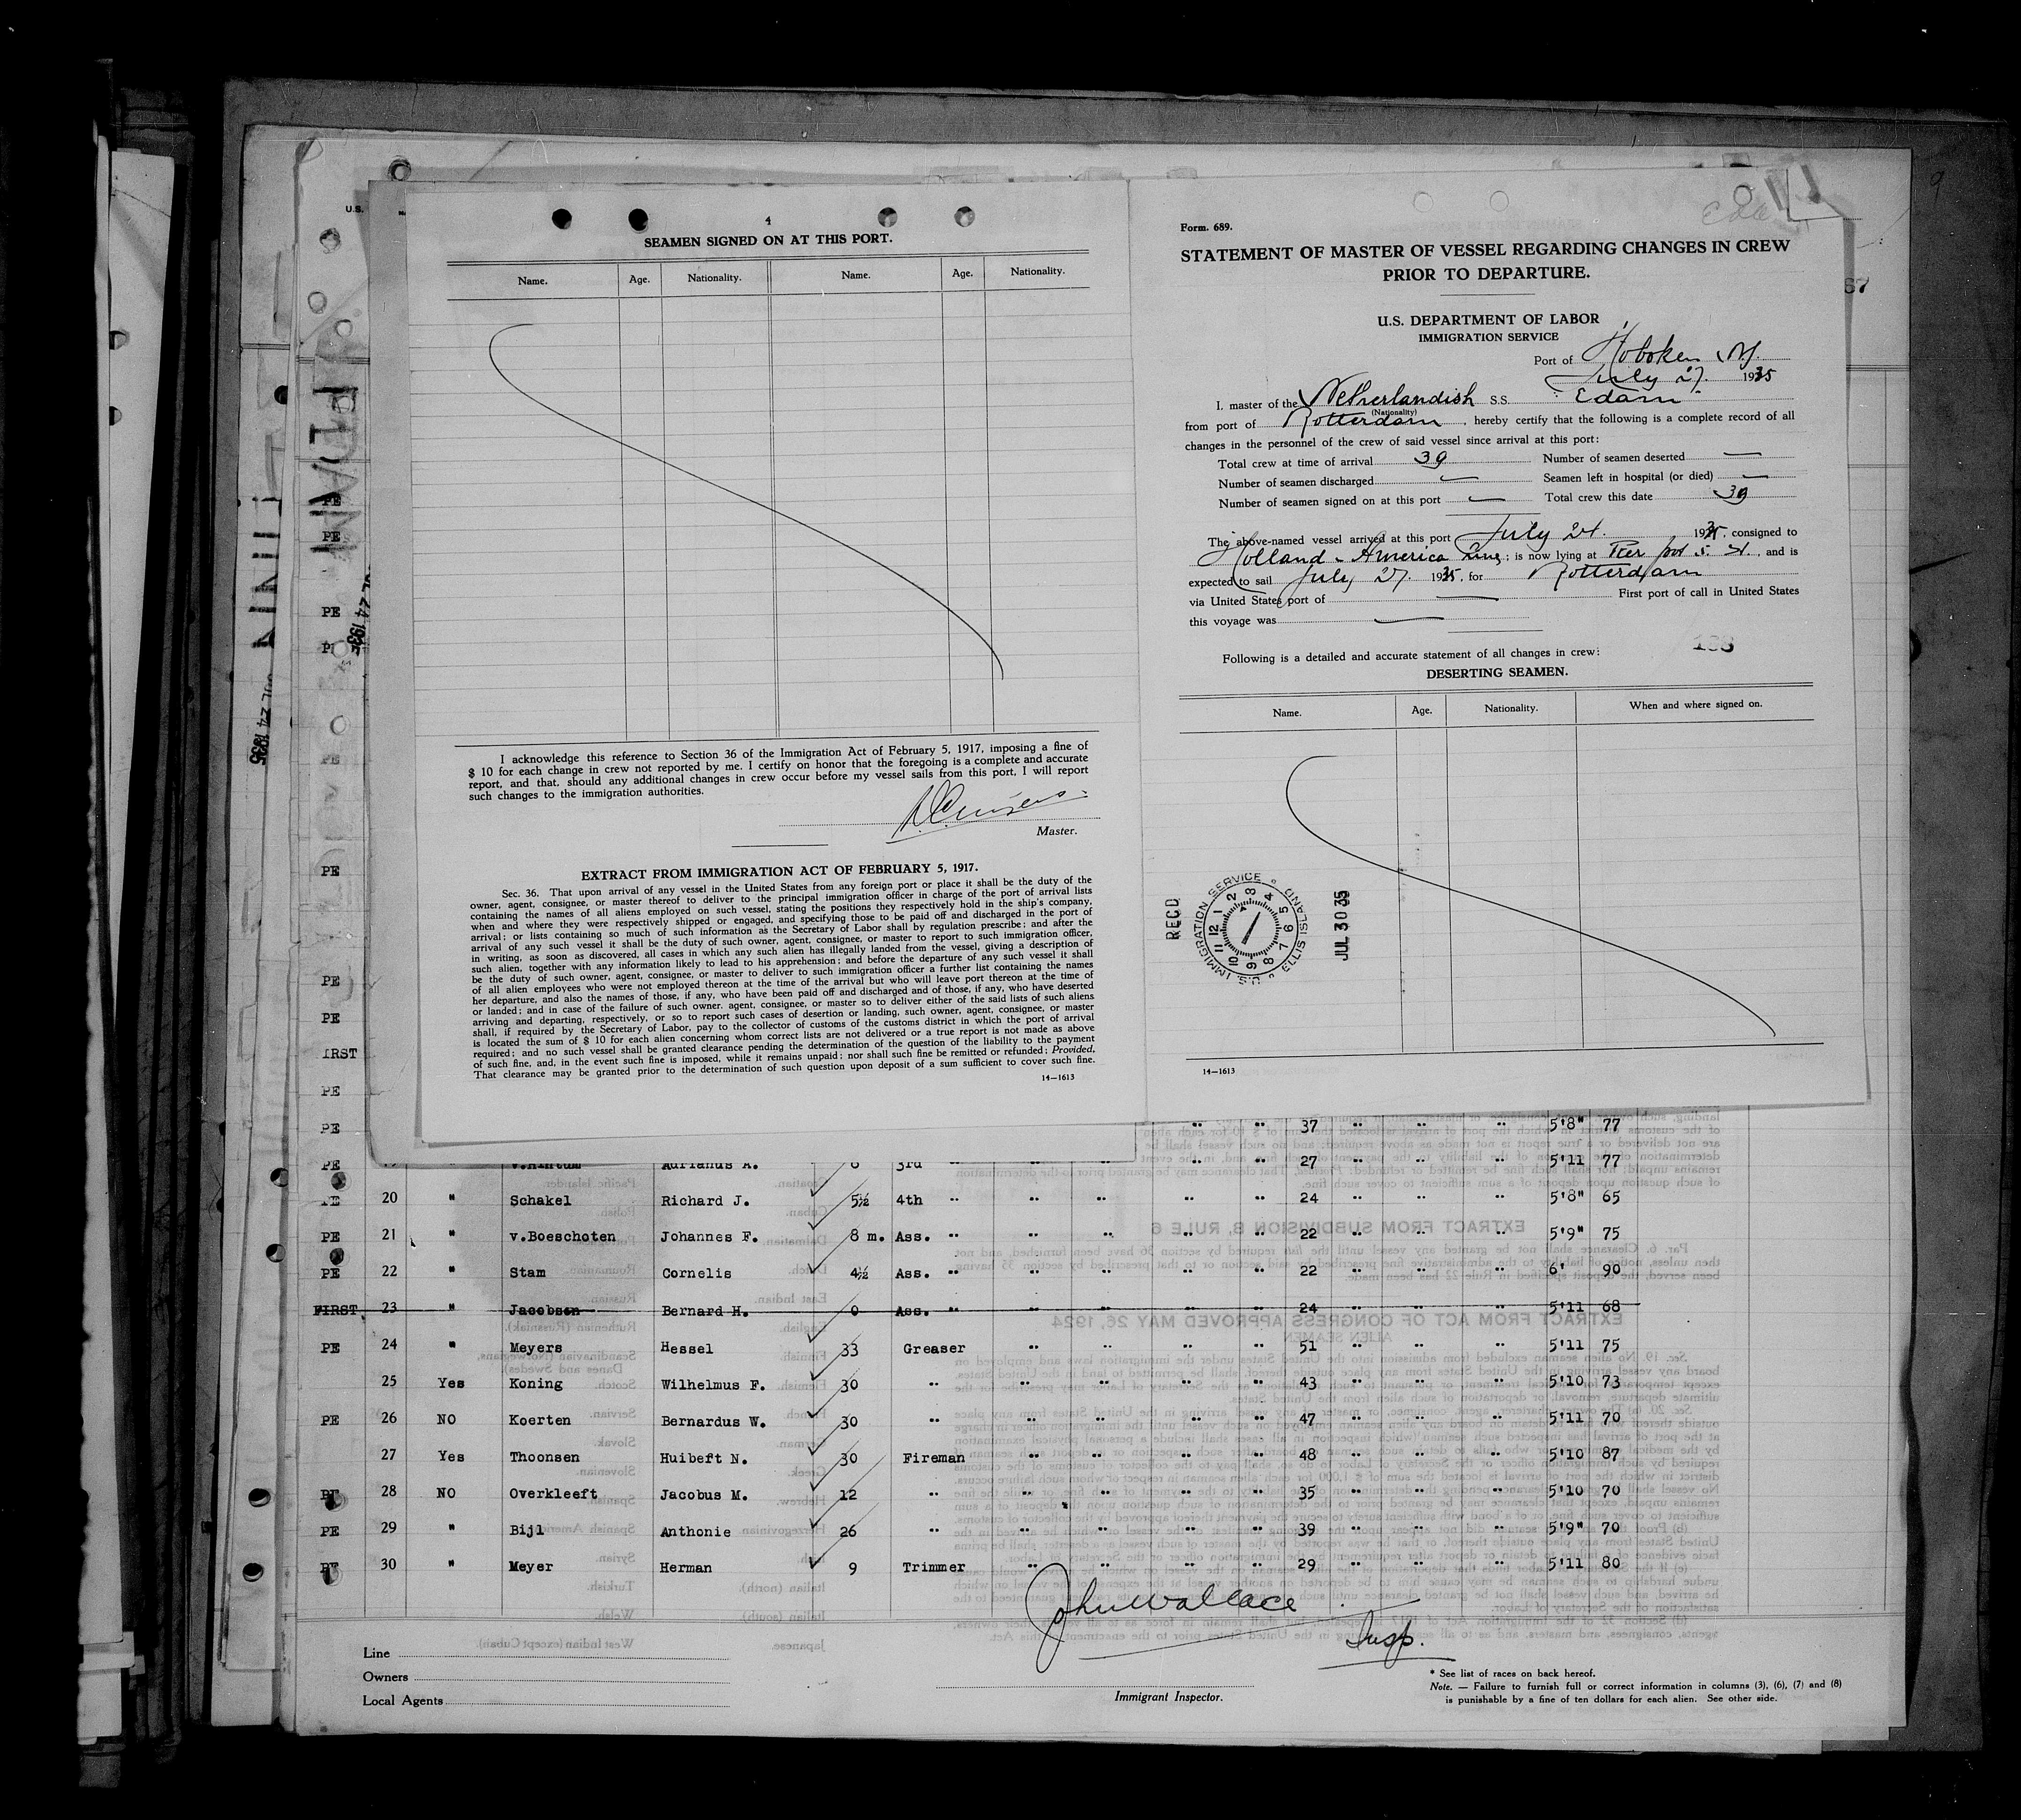 4
SEAMEN SIGNED ON AT THIS PORT.
Name. Age. Nationality. Name. Age. Nationality.
I acknowledge this reference to Section 36 of the Immigration Act of February 5, 1917, imposing a fine of
$ 10 for each change in crew not reported by me. I certify on honor that the foregoing is a complete and accurate
report, and that, should any additional changes in crew occur before my vessel sails from this port, I will report
such changes to the immigration authorities.
Master.
EXTRACT FROM IMMIGRATION ACT OF FEBRUARY 5, 1917.
Sec. 36. That upon arrival of any vessel in the United States from any foreign port or place it shall be the duty of the
owner, agent, consignee, or master thereof to deliver to the principal immigration officer in charge of the port of arrival lists
containing the names of all aliens employed on such vessel, stating the positions they respectively hold in the ship's company,
when and where they were respectively shipped or engaged, and specifying those to be paid off and discharged in the port of
arrival; or lists containing so much of such information as the Secretary of Labor shall by regulation prescribe; and after the
arrival of any such vessel it shall be the duty of such owner, agent, consignee, or master to report to such immigration officer,
in writing, as soon as discovered, all cases in which any such alien has illegally landed from the vessel, giving a description of
such alien, together with any information likely to lead to his apprehension; and before the departure of any such vessel it shall
be the duty of such owner, agent, consignee, or master to deliver to such immigration officer a further list containing the names
of all alien employees who were not employed thereon at the time of the arrival but who will leave port thereon at the time of
her departure, and also the names of those, if any, who have been paid off and discharged and of those, if any, who have deserted
or landed; and in case of the failure of such owner. agent, consignee, or master so to deliver either of the said lists of such aliens
arriving and departing, respectively, or so to report such cases of desertion or landing, such owner, agent, consignee, or master
shall, if required by the Secretary of Labor, pay to the collector of customs of the customs district in which the port of arrival
is located the sum of $ 10 for each alien concerning whom correct lists are not delivered or a true report is not made as above
required; and no such vessel shall be granted clearance pending the determination of the question of the liability to the payment
of such fine, and, in the event such fine is imposed, while it remains unpaid; nor shall such fine be remitted or refunded; Provided,
That clearance may be granted prior to the determination of such question upon deposit of a sum sufficient to cover such fine.
14—1613
Form. 689.
STATEMENT OF MASTER OF VESSEL REGARDING CHANGES IN CREW
PRIOR TO DEPARTURE.
U.S. DEPARTMENT OF LABOR
IMMIGRATION SERVICE
Port of Hoboken NJ.
July 27. 1935
I, master of the Netherlandish S.S. "Edam"
(Nationality)
from port of Rotterdam, hereby certify that the following is a complete record of all
changes in the personnel of the crew of said vessel since arrival at this port:
Total crew at time of arrival 39 Number of seamen deserted —
Number of seamen discharged — Seamen left in hospital (or died) —
Number of seamen signed on at this port — Total crew this date 39
The above-named vessel arrived at this port July 24. 1935, consigned to
Holland - America Line; is now lying at Pier foot 5. St., and is
expected to sail July 27. 1935, for Rotterdam
via United States port of — First port of call in United States
this voyage was —
Following is a detailed and accurate statement of all changes in crew:
188
DESERTING SEAMEN.
Name. Age. Nationality. When and where signed on.
RECD
U.S. IMMIGRATION SERVICE ELLIS ISLAND
1 2 3 4 5 6 7 8 9 10 11 12
JUL 30 35
14—1613
U.S.
67
EDAM
JUL 24 1935
JUL 24 1935
PE
PE
PE
PE
PE
PE
PE
IRST
PE
PE " " 37 " " " 5'8" 77
PE 19 " v.Hintum Adrianus A. 6 3rd " " " " " 27 " " " 5'11 77
PE 20 " Schakel Richard J. 5½ 4th " " " " " 24 " " " 5'8" 65
PE 21 " v.Boeschoten Johannes F. 8 m. Ass. " " " " " 22 " " " 5'9" 75
PE 22 " Stam Cornelis 4½ Ass. " " " " " 22 " " " 6' 90
FIRST 23 " Jacobsen Bernard H. 0 Ass. " " " " " 24 " " " 5'11 68
PE 24 " Meyers Hessel 33 Greaser " " " " 51 " " " 5'11 75
25 Yes Koning Wilhelmus F. 30 " " " " " 43 " " " 5'10 73
PE 26 NO Koerten Bernardus W. 30 " " " " " 47 " " " 5'11 70
27 Yes Thoonsen Huibeft N. 30 Fireman " " " " 48 " " " 5'10 87
PE 28 NO Overkleeft Jacobus M. 12 " " " " " 35 " " " 5'10 70
PE 29 " Bijl Anthonie 26 " " " " " 39 " " " 5'9" 70
PE 30 " Meyer Herman 9 Trimmer " " " " 29 " " " 5'11 80
John Wallace
Insp.
Line
Owners
Local Agents
Immigrant Inspector.
* See list of races on back hereof.
Note. — Failure to furnish full or correct information in columns (3), (6), (7) and (8)
is punishable by a fine of ten dollars for each alien. See other side.